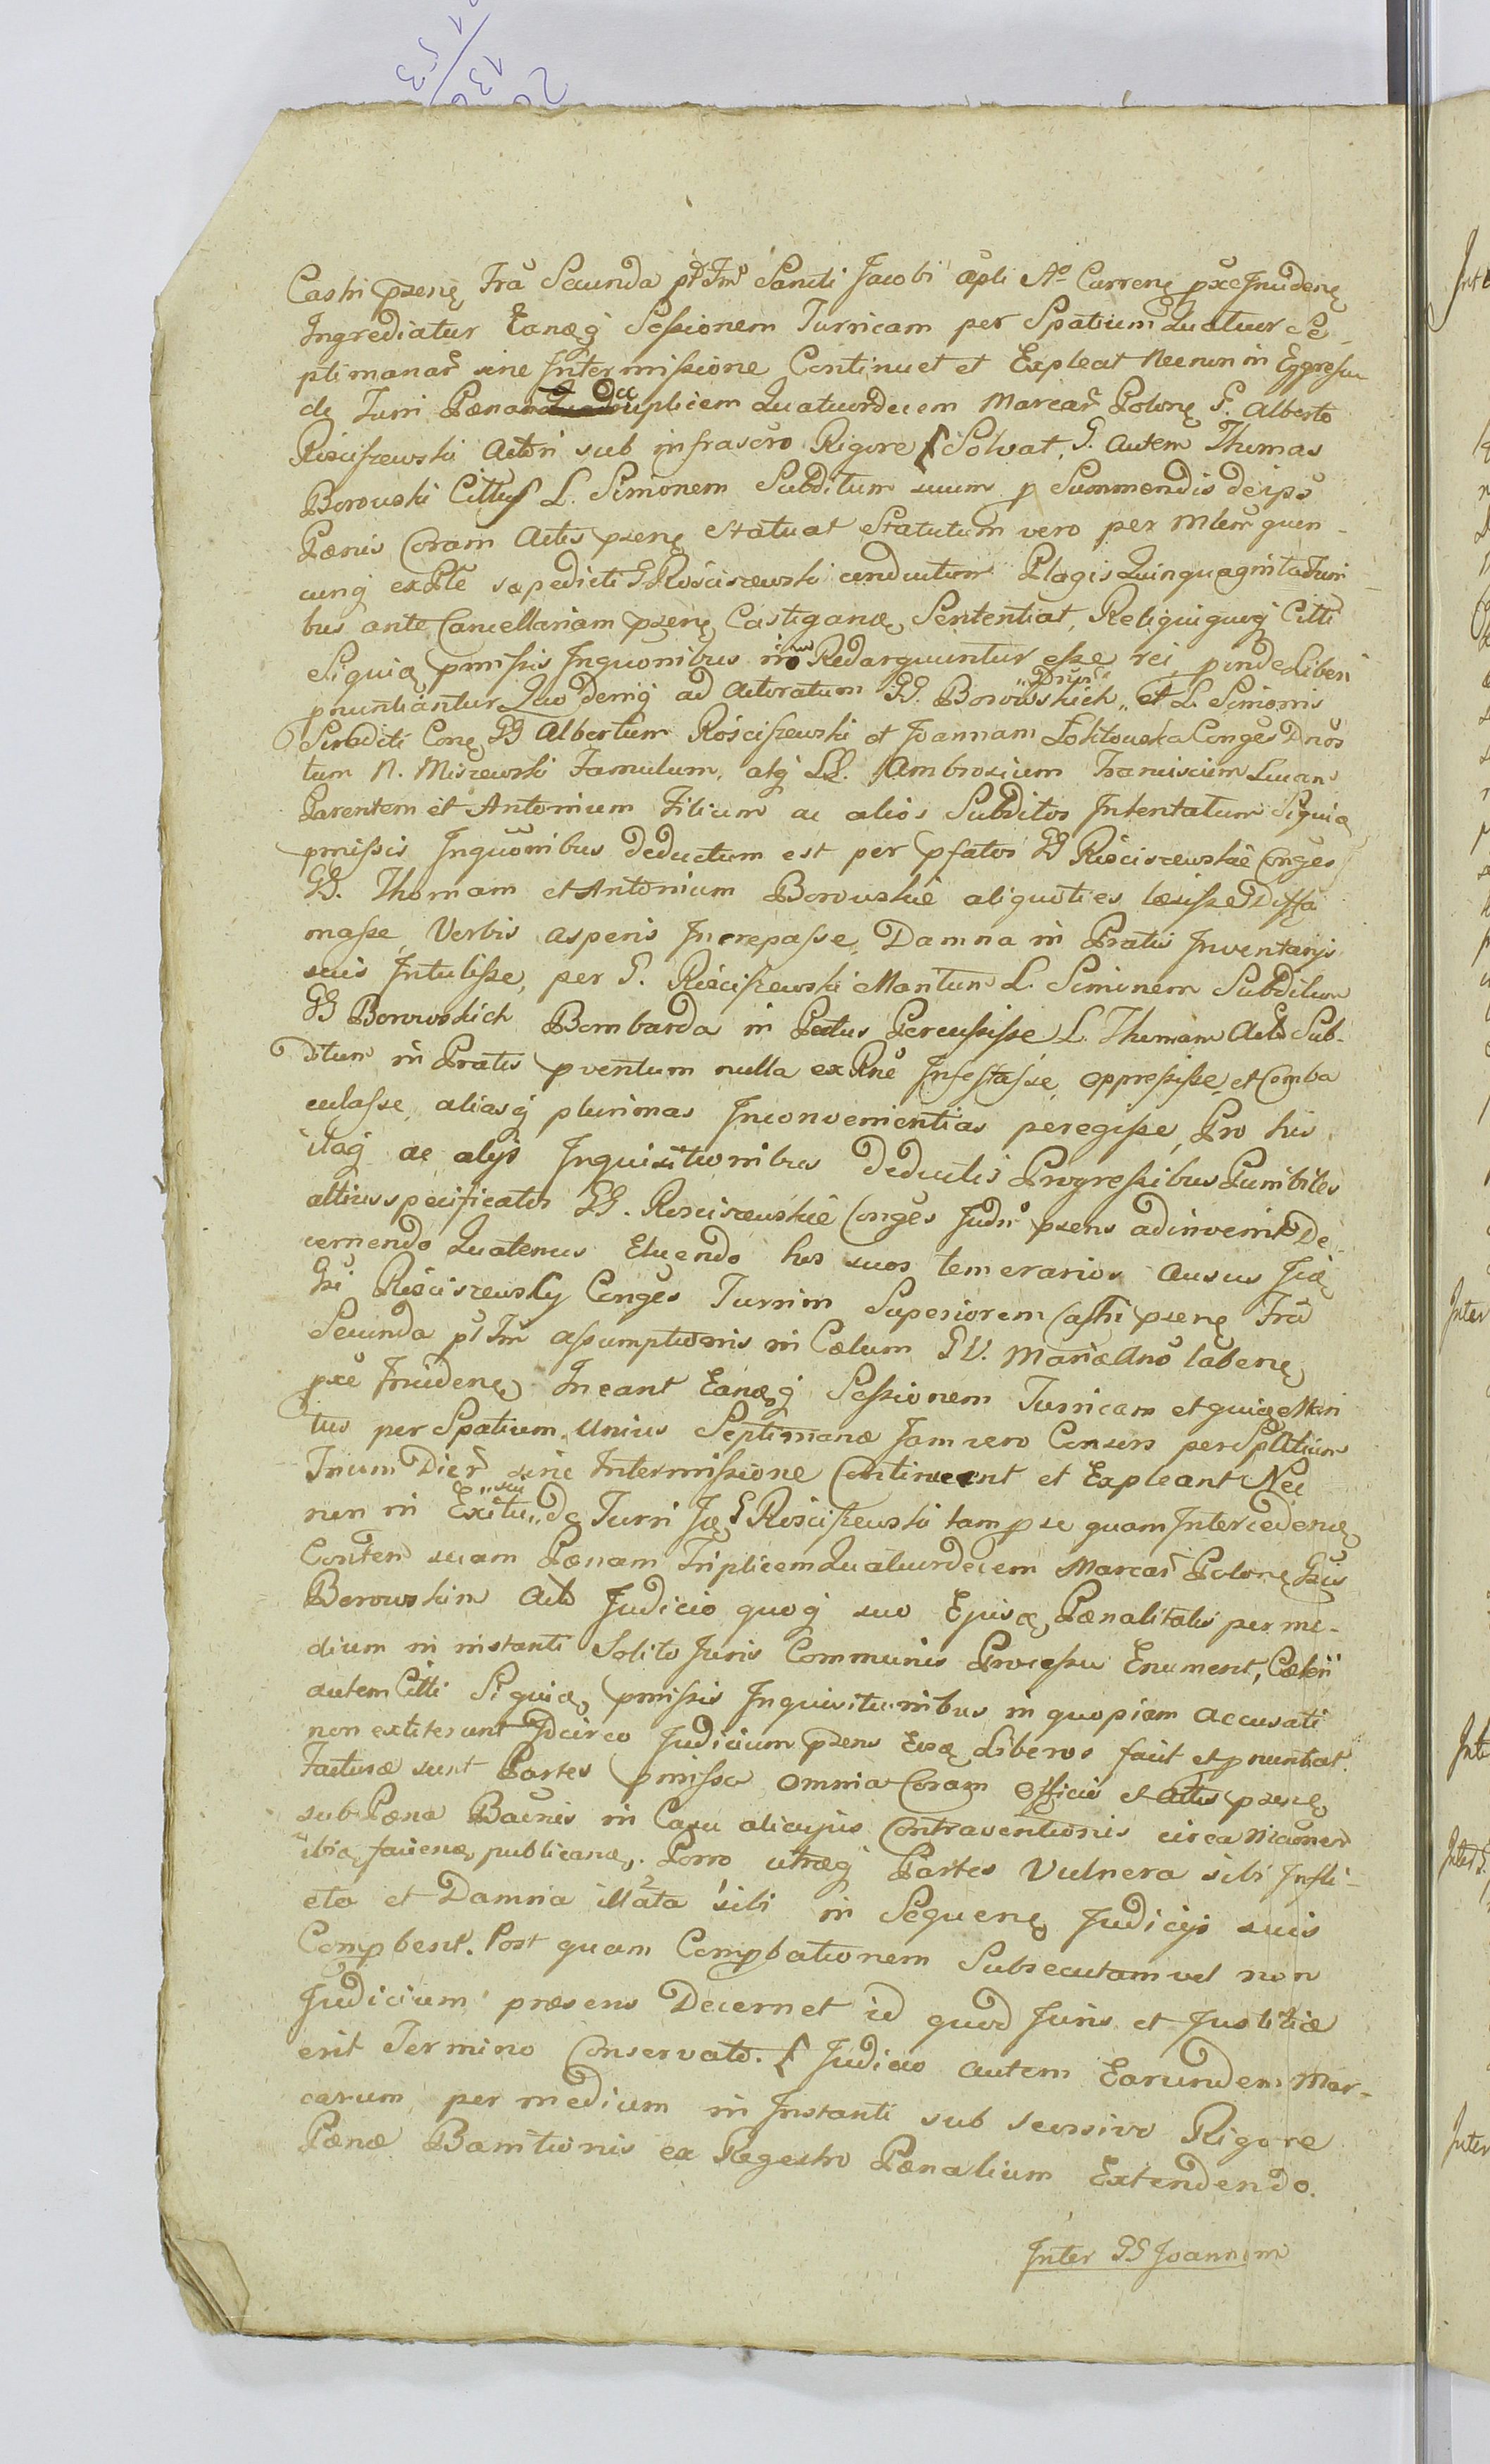 Castri psenę Fra Secunda pt Fm Sancti Jacobi apli Ao Currenę pxe Jncidenę
Ingrediatur Eanęq Sessionem Turricam per Spatium Quatuor Se-
ptimanar sine Intermissione Continuet et Expleat Necnon in Eggressu
de Turri Pœnam Duplicem Quatuordecem Marcar Polonę G. Alberto
Rosciszewski Actori sub infrascro Rigore Solvat, G. autem Thomas
Borowski Cittus L. Simonem Subditum suum p Summendis de ipso
Pœnis Coram Actis psenę Statuat Statutum vero per Mlem quen-
cunq ex Pte sæpedicti G Rosciszewski conductum Plagis Quinquaginta Turi
bus ante Cancellariam psenę Castiganď Sententiat, Reliquiquoq Citti
Siquid pmissis Inquonibus non Redarguuntur esse rei, pinde Liberi
pnuntiantur Quo deniq ad Actoratum GG. Borowskich et L. Simonis
Subditi Conę GG Albertum Rosciszewski et Joannam Loktowska Conges Dnos
tum N. Miszewski Famulum, atq LL. Ambrosium Franciscum Lucan
Parentem et Antonium Filium ac alios Subditos Intentatum Siquid
pmissis Inquonibus deductum est per pfatos GG Rosciszewskie Conges
GG. Thomam et Antonium Borowskie aliquoties læsisse Diffa
masse, Verbis asperis Increpasse, Damna in Pratis Inventarijs
suis Intulisse, per G. Rosciszewski Maritum L. Simonem Subditum
GG Borowskich Bombarda in Pectus Percussisse L. Thomam Acto Sub-
ditum in Pratis pventum nulla ex Rne Infestasse, oppressisse, et Comba
culasse, aliasq plurimas Inconvenientias peregisse, Pro his
itaq ac alijs Inquisitionibus deductis Progressibus Punibiles
altius specificatos GG. Rosciszewskie Conges Judm psens adinvenit De
cernendo Quatenus Eluendo hos suos temerarios ausus Jid
Gsi Rosciszewsky Conges Turrim Superiorem Castri psenę Fra
Secunda pt Fm assumptionis in Cœlum B V. Mariæ Ano labenę
pxe Jncidenę Ineant Eanęq Sessionem Turricam et quid Mari
tus per Spatium Unius Septimanæ Jam vero Consors per Spatium
Trium Dier sine Intermissione Continuent et Expleant Nec
non in Exitu de Turri Jd G Rosciszewski tam p se quam Intercedenę
Contem suam Pœnam Triplicem Quatuordecem Marcar Polonę Gsis
Borowskim Acto Judicio quoq suo Ejusď Pœnalitatis per me-
dium in instanti Solito Juris Communis Processu Enument, Cæteri
autem Citti Siquid pmissis Inquisitionibus in quopiam accusati
non extiterunt Idcirco Judicium psens Eosď Liberos facit et pnuntiat.
Facturæ sunt Partes pmissa omnia Coram Officio et Actis psenę
sub Pœna Banis in Casu alicujus Contraventionis circa
ibid facienď, publicanď. Porro utræq Partes Vulnera sibi Infli-
cta et Damna illata sibi in Sequenę Judicijs suis
Compbent. Post quam Compbationem Subsecutam vel non
Judicium præsens Decernet id quod Juris et Justitiæ
erit Termino Conservato. Judicio autem Earundem Mar-
carum per medium in Instanti sub Seorsivo Rigore
Pœnæ Banitionis ex Regestro Pœnalium Extendendo.
Inter GG Joannem